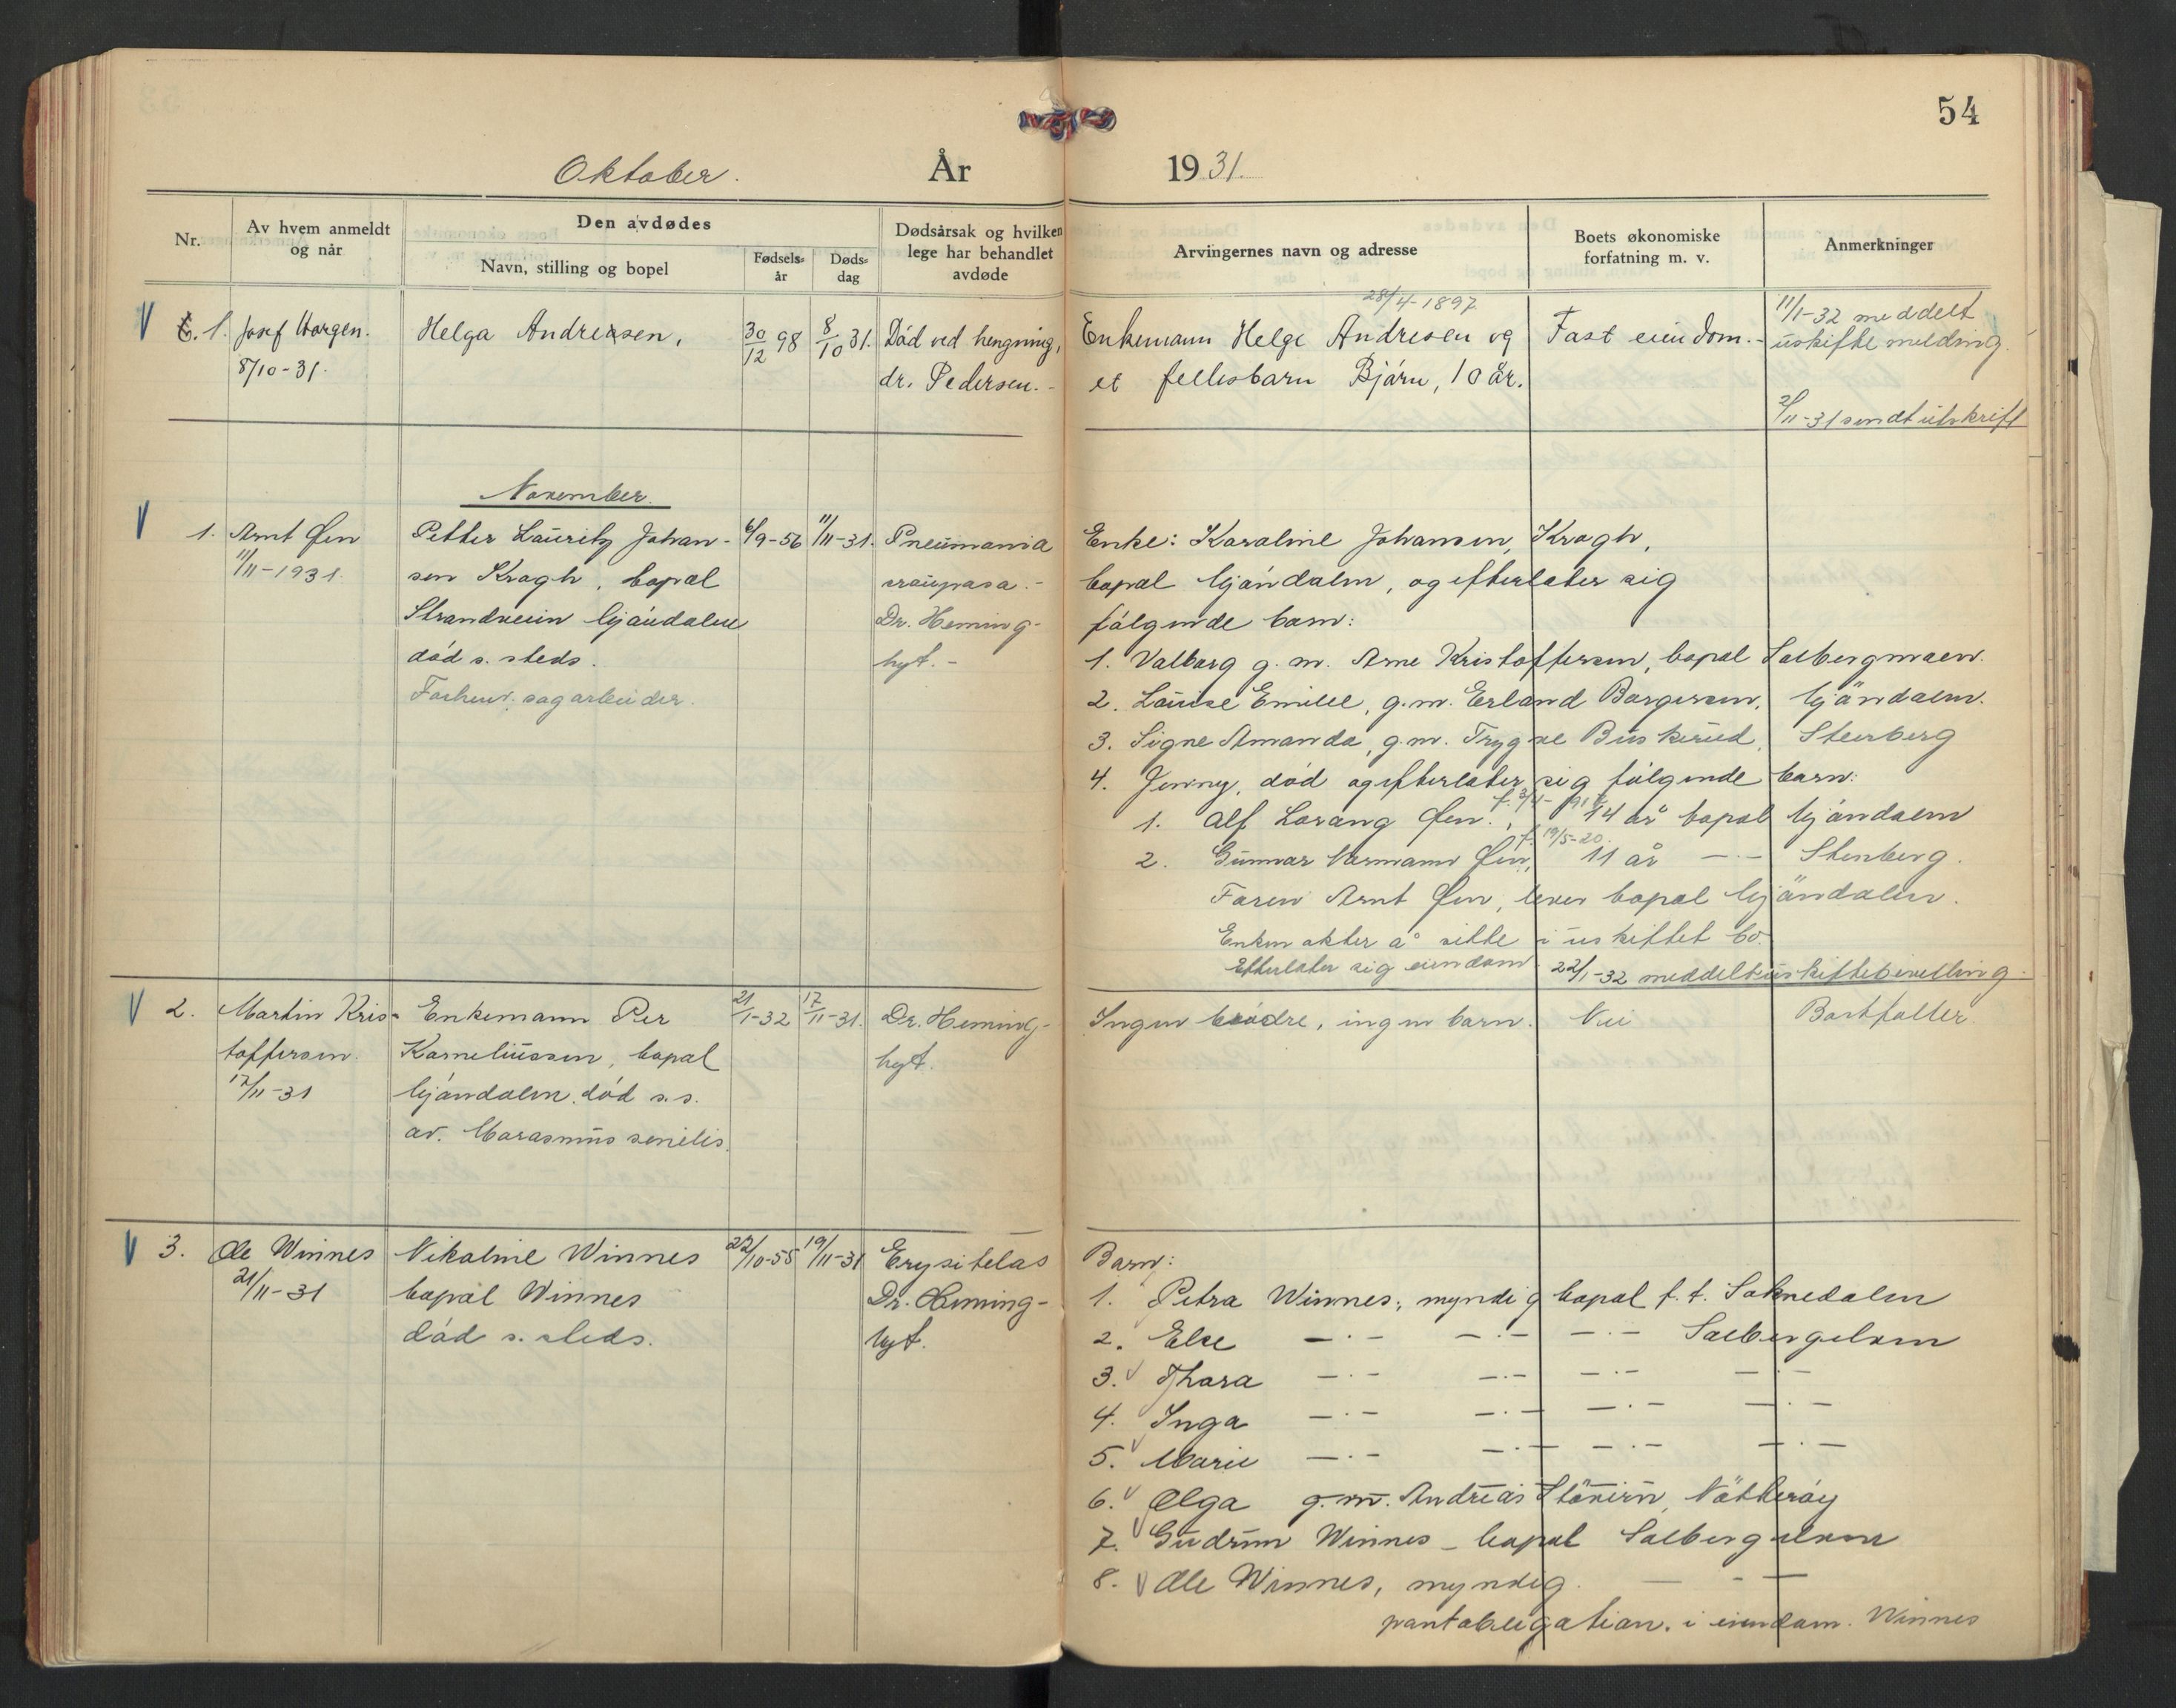 54
Oktober. År 1931.
Nr.
Av hvem anmeldt
og når
Den avdødes
Navn, stilling og bopel
Fødsels-
år
Døds-
dag
Dødsårsak og hvilken
lege har behandlet
avdøde
Arvingernes navn og adresse
Boets økonomiske
forfatning m. v.
Anmerkninger
1. Josef Horgen.
8/10-31.
Helga Andresen,
30/12 98
8/10 31.
Død ved hengning,
dr. Pedersen.-
28/4-1897
Enkemann Helge Andresen og
et fellesbarn Bjørn, 10 år.
Fast eiendom.-
11/1-32 meddelt
uskiftemelding.
2/11-31 sendt utskrift
November.
1. Arnt Øen
11/11-1931.
Petter Lauritz Johan-
sen Kragh, bopel
Strandveien Mjøndalen
død s. steds.
Forhenv. sagarbeider.
6/9-56
11/11-31.
Pneumonia
crouposa.-
Dr. Heming-
hyt.-
Enke: Karoline Johansen, Kragh,
bopel Mjøndalen, og efterlater sig
følgende barn:
1. Valborg g. m. Arne Kristoffersen, bopel Solbergmoen.
2. Louise Emilie, g. m. Erland Borgersen, Mjøndalen.
3. Signe Amanda, g. m. Trygve Buskerud, Steinberg
4. Jenny, død og efterlater sig følgende barn:
1. Alf Lorang Øen., 14 år bopel Mjøndalen
f. 19/5-20.
2. Gunnar Hermann Øen, 11 år -·- Stenberg.
Faren Arnt Øen, lever bopel Mjøndalen.
Enken akter å sitte i uskiftet bo.
Etterlater sig eiendom 22/1-32 meddelt uskiftebevilling.
2. Martin Kris-
toffersen.
17/11-31
Enkemann Per
Korneliussen, bopel
Mjøndalen. død s. s.
av. Marasmus senilis.
21/1-32
17/11-31.
Dr. Heming-
hyt.
Ingen brødre, ingen barn.
Nei
Bortfaller.
3. Ole Winnes
21/11-31
Nikoline Winnes
bopel Winnes
død s. steds.
22/10-55
19/11-31
Erysitelas
Dr. Heming-
hyt.
Barn:
1. Petra Winnes, myndig bopel f. t. Soknedalen
2. Else -·- -·- -·- Solbergelven
3. Thora -·- -·- -·- -·-
4. Inga -·- -·- -·- -·-
5. Marie -·- -·- -·- -·-
6. Olga g. m. Andreas Nøtterøy
7. Gudrun Winnes - bopel Solbergelven
8. Ole Winnes, myndig. - - -
pantobligation. i eiendom. Winnes